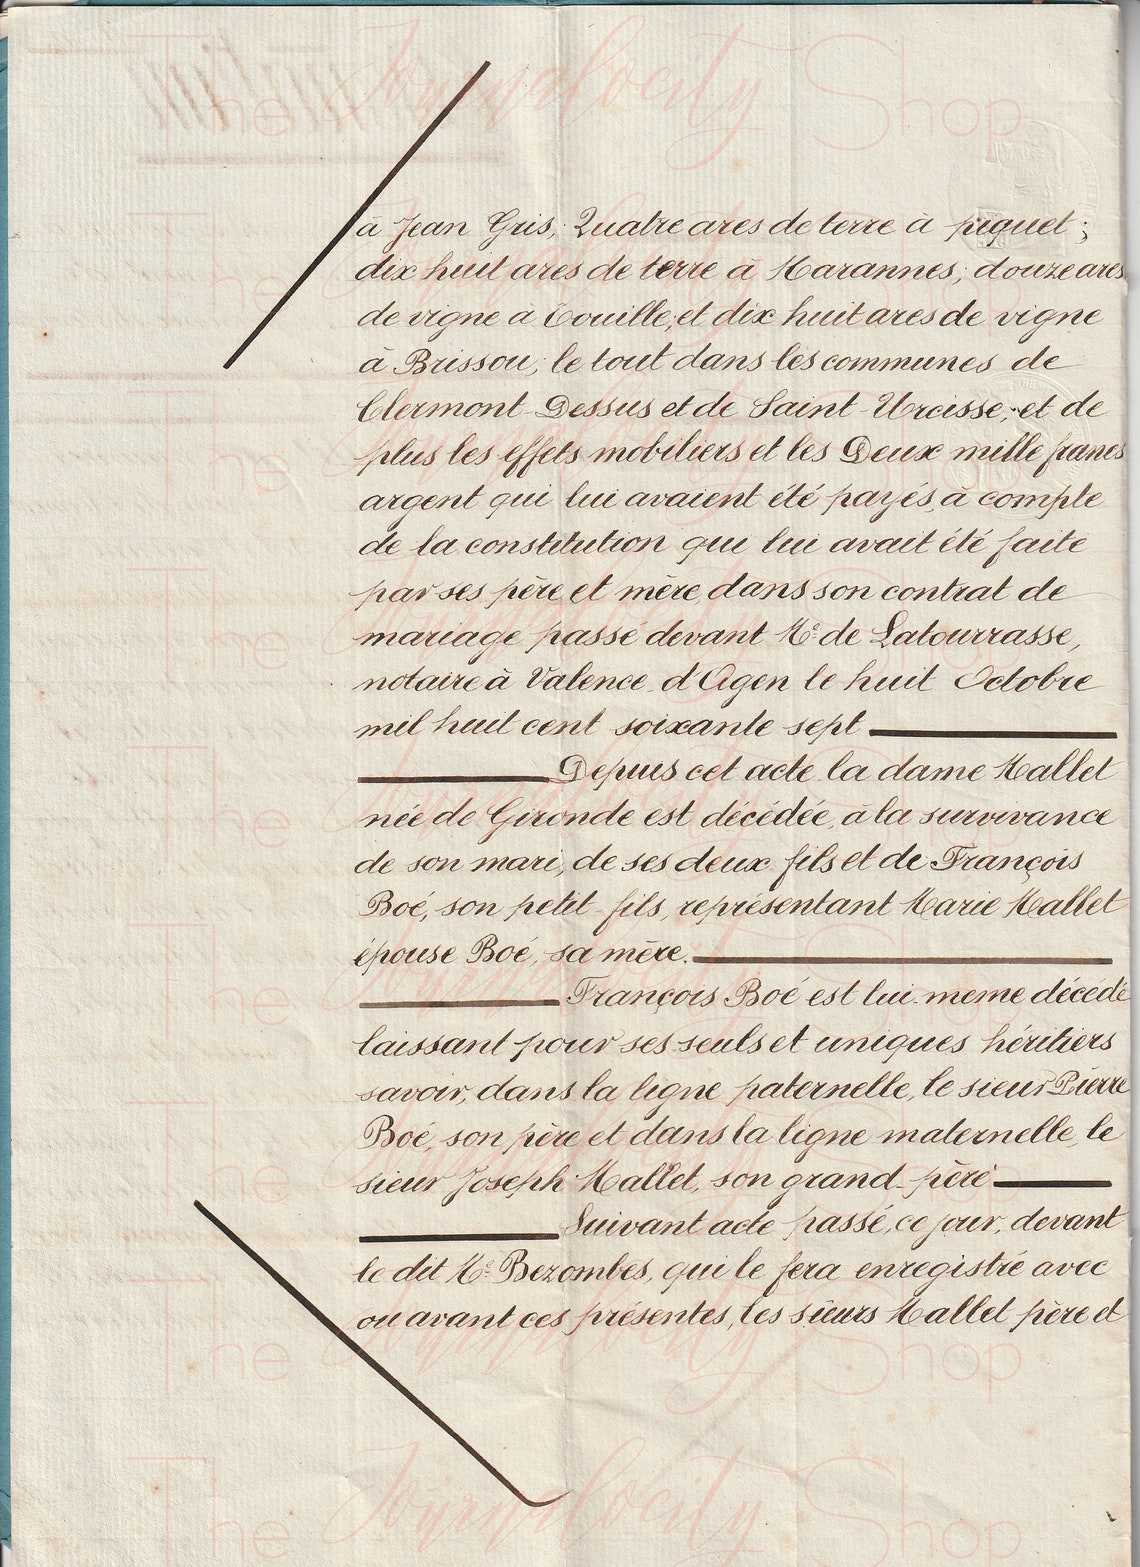 à Jean Gris; Quatre ares de terre à piquet;
dix huit ares de terre à Marannes; douze ares
de vigne à Couille; et dix huit ares de vigne
à Brissou; le tout dans les communes de
Clermont-Dessus et de Saint-Urcisse; et de
plus les effets mobiliers et les Deux mille francs
argent qui lui avaient été payés, à compte
de la constitution que lui avait été faite
par ses père et mère, dans son contrat de
mariage passé devant Me de Latourrasse,
notaire à Valence d'Agen le huit Octobre
mil huit cent soixante sept
Depuis cet acte la dame Mallet
née de Gironde est décédée, à la survivance
de son mari, de ses deux fils et de François
Boé, son petit-fils, représentant Marie Mallet
épouse Boé, sa mère.
François Boé est lui-meme décédé
laissant pour ses seuls et uniques héritiers
savoir, dans la ligne paternelle, le sieur Pierre
Boé, son père et dans la ligne maternelle, le
sieur Joseph Mallet, son grand-père
Suivant acte passé, ce jour, devant
le dit Me Bezombes, qui le fera enregistré avec
ou avant ces présentes, les sieurs Mallet père et
The Journalocity Shop